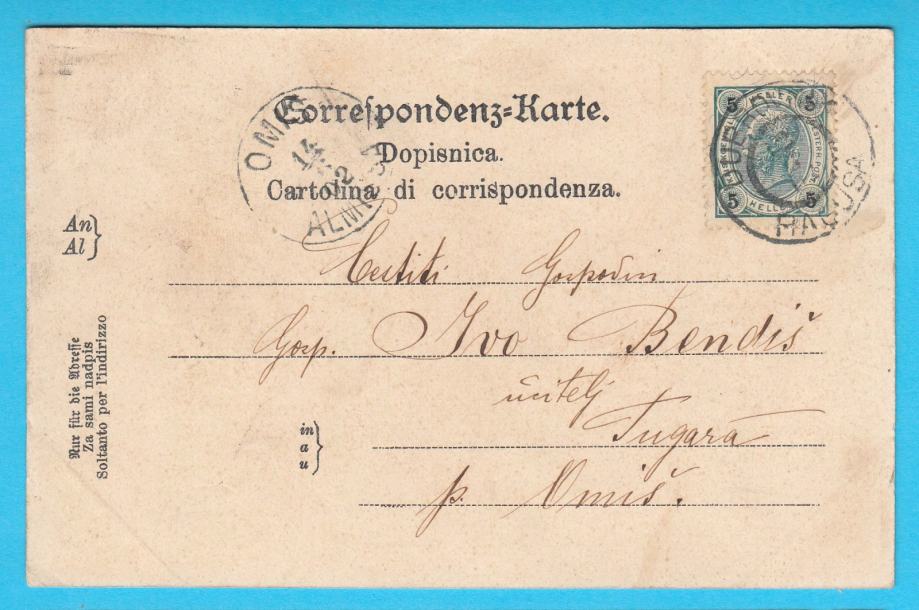 Correspondenz-Karte.
Dopisnica.
Cartolina di corrispondenza.
OMIŠ
14
ALMISSA
5 5
HELLER
5 5
HELLER
RAGUSA
An
Al
Cestiti Gospodin
Gosp. Ivo Bendiš
učitelj
Tugara
p. Omiš.
in
a
u
Nur für die Adresse
Za sami nadpis
Soltanto per l'indirizzo